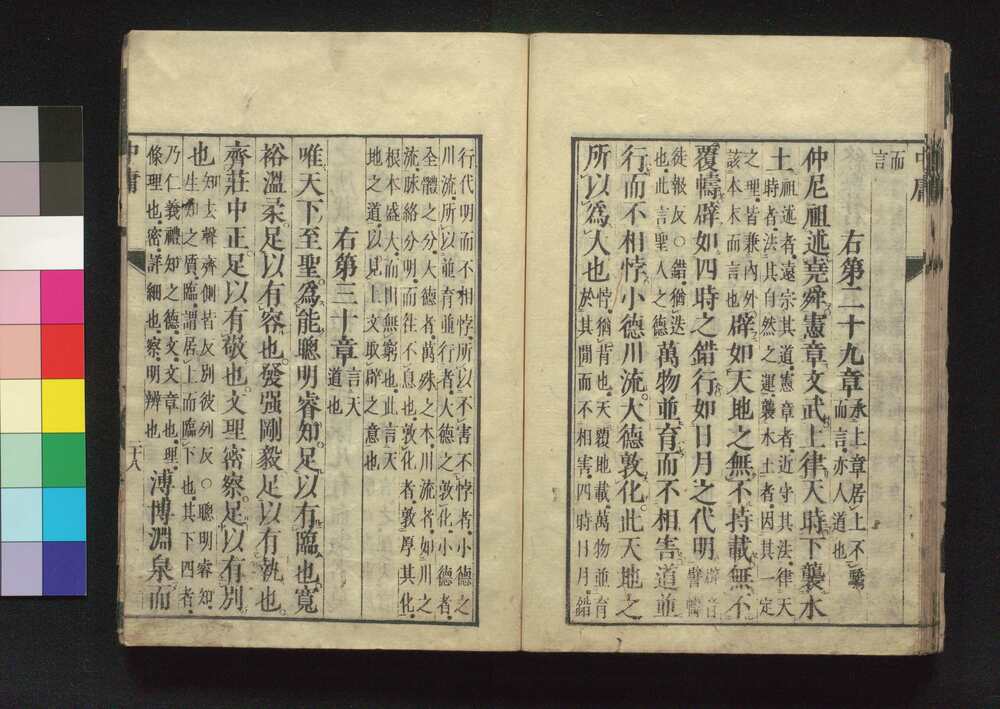 中庸
而
言
右第二十九章
承上章居上不驕
而言亦人道也
仲尼祖述堯舜憲章文武上律天時下襲水
土
祖述者遠宗其道憲章者近守其法律天
時者法其自然之運襲水土者因其一定
之理皆兼內外
該本末而言也
辟如天地之無不持載無不
覆幬辟如四時之錯行如日月之代明
辟音
譬幬
徒報反○錯猶迭
也此言聖人之德
萬物並育而不相害道並
行而不相悖小德川流大德敦化此天地之
所以爲大也
悖猶背也天覆地載萬物並育
於其閒而不相害四時日月錯
行代明而不相悖所以不害不悖者小德之
川流所以並育並行者大德之敦化小德者
全體之分大德者萬殊之本川流者如川之
流脉絡分明而往不息也敦化者敦厚其化
根本盛大而出無窮也此言天
地之道以見上文取辟之意也
右第三十章
言天
道也
唯天下至聖爲能聰明睿知足以有臨也寬
裕溫柔足以有容也發强剛毅足以有執也
齊莊中正足以有敬也文理密察足以有別
也
知去聲齊側皆反別彼列反○聰明睿知
生知之質臨謂居上而臨下也其下四者
乃仁義禮知之德文文章也理
條理也密詳細也察明辨也
溥博淵泉而
中庸